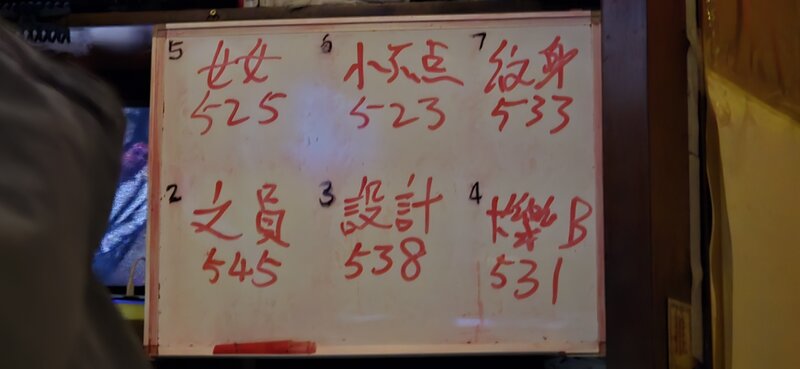 5 女女
525
6 小不点
523
7 紋身
533
2 文員
545
3 設計
538
4 B
531